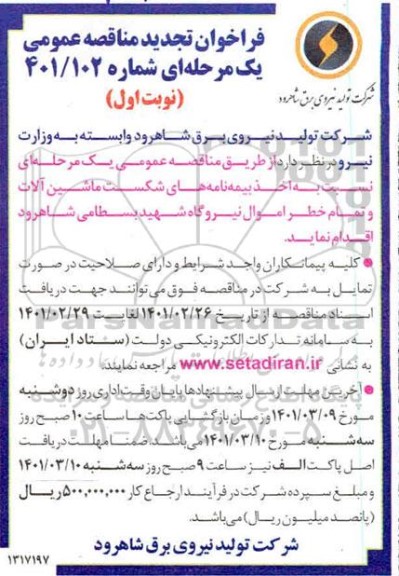 فراخوان تجدید مناقصه عمومی
یک مرحله‌ای شماره ۴۰۱/۱۰۲
(نوبت اول)
شرکت تولید نیروی برق شاهرود
شرکت تولید نیروی برق شاهرود وابسته به وزارت
نیرو در نظر دارد از طریق مناقصه عمومی یک مرحله‌ای
نسبت به اخذ بیمه‌نامه‌های شکست ماشین آلات
و تمام خطر اموال نیروگاه شهید بسطامی شاهرود
اقدام نماید.
● کلیه پیمانکاران واجد شرایط و دارای صلاحیت در صورت
تمایل به شرکت در مناقصه فوق می‌توانند جهت دریافت
اسناد مناقصه از تاریخ ۱۴۰۱/۰۲/۲۶ لغایت ۱۴۰۱/۰۲/۲۹
به سامانه تدارکات الکترونیکی دولت (ستاد ایران) به
نشانی www.setadiran.ir مراجعه نمایند.
● آخرین مهلت ارسال پیشنهادها پایان وقت اداری روز دوشنبه
مورخ ۱۴۰۱/۰۳/۰۹ و زمان بازگشایی پاکت‌ها ساعت ۱۰ صبح روز
سه‌شنبه مورخ ۱۴۰۱/۰۳/۱۰ می‌باشد. ضمنا مهلت دریافت
اصل پاکت الف نیز ساعت ۹ صبح روز سه‌شنبه ۱۴۰۱/۰۳/۱۰
و مبلغ سپرده شرکت در فرآیند ارجاع کار ۵۰۰,۰۰۰,۰۰۰ ریال
(پانصد میلیون ریال) می‌باشد.
شرکت تولید نیروی برق شاهرود
۱۳۱۷۱۹۷
۰۲۱-۸۸۳۴۹۶۷۰-۵